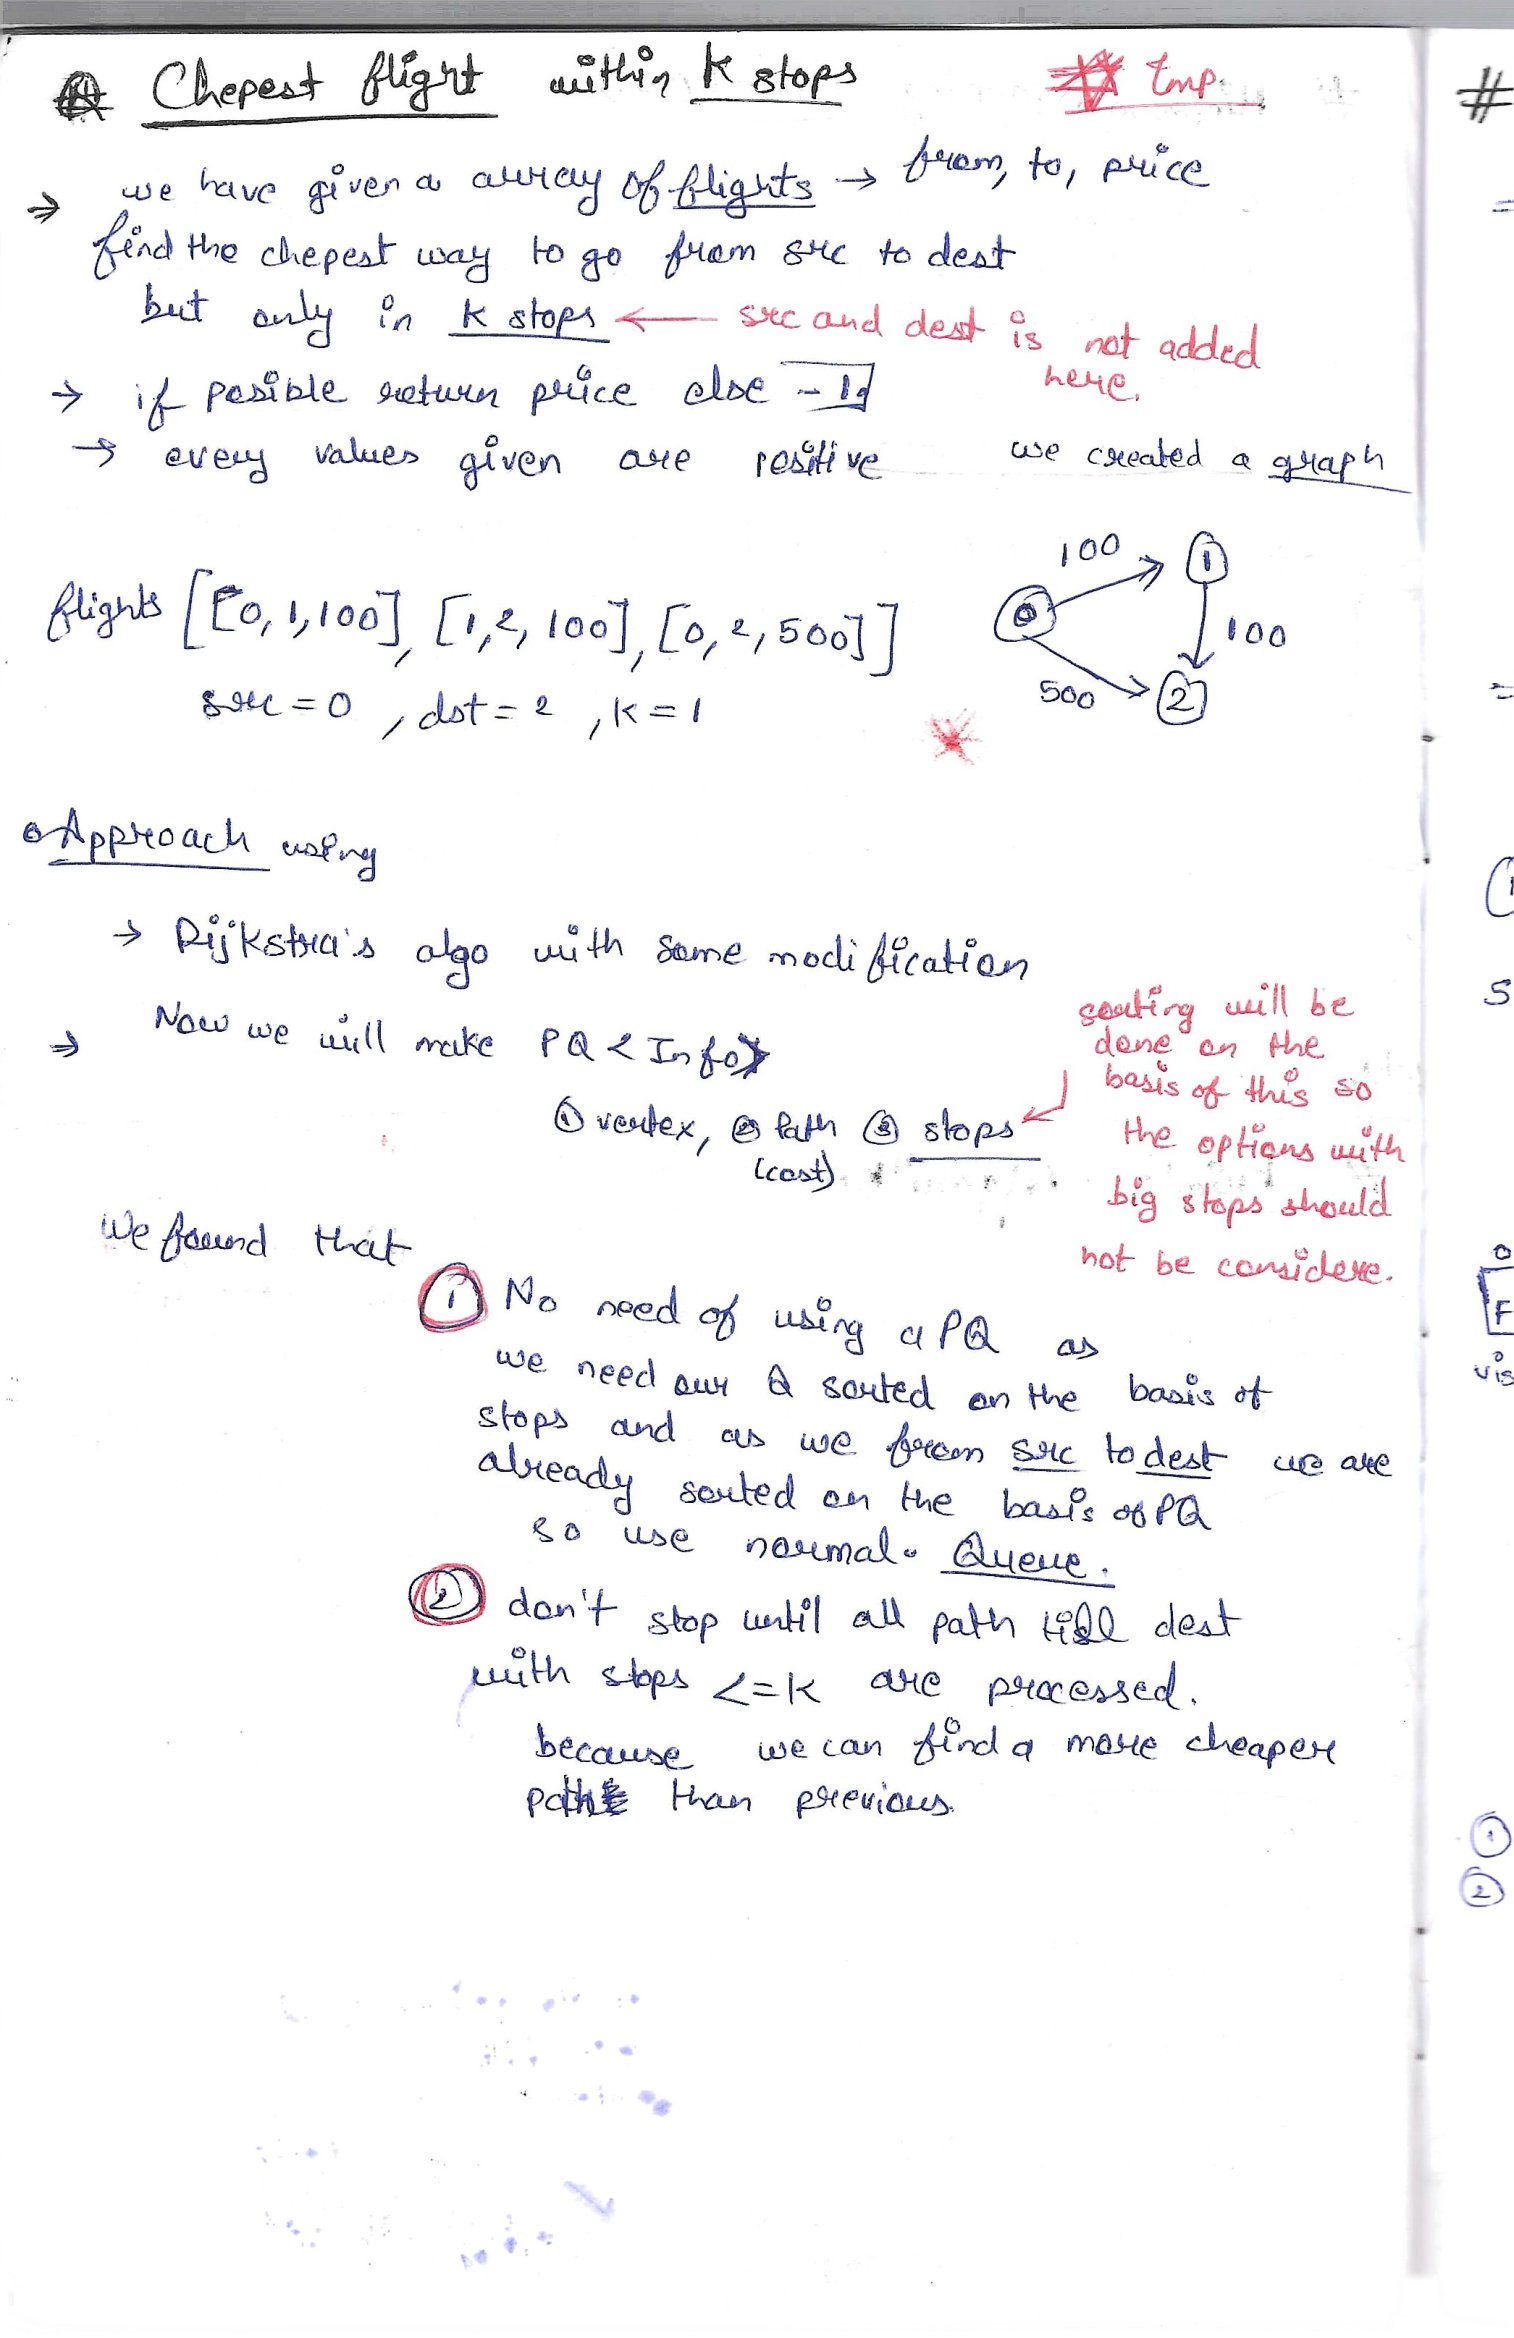 Chepest flight within K stops Imp.
#
⇒ we have given a array of flights → from, to, price
find the chepest way to go from src to dest
but only in K stops ← src and dest is not added here.
→ if posible return price else -1.
→ every values given are positive
we created a graph
flights [[0,1,100], [1,2,100], [0,2,500]]
src=0, dst=2, K=1
100
1
0
100
500
2
Approach using
→ Dijkstra's algo with some modification
⇒ Now we will make PQ<Info>
① vertex, ② Path ③ stops
(cost)
sorting will be
done on the
basis of this so
the options with
big stops should
not be considere.
We found that
① No need of using a PQ as
we need our Q sorted on the basis of
stops and as we from src to dest we are
already sorted on the basis of PQ
so use normal Queue.
② don't stop until all path till dest
with stops <=K are processed.
because we can find a more cheapere
path than previous.
S
F
vis
①
②